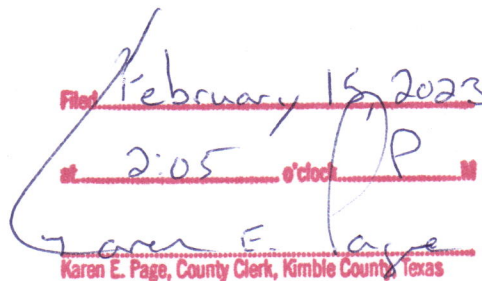 Filed February 15, 2023
at 2:05 o'clock P M
Karen E. Page
Karen E. Page, County Clerk, Kimble County, Texas